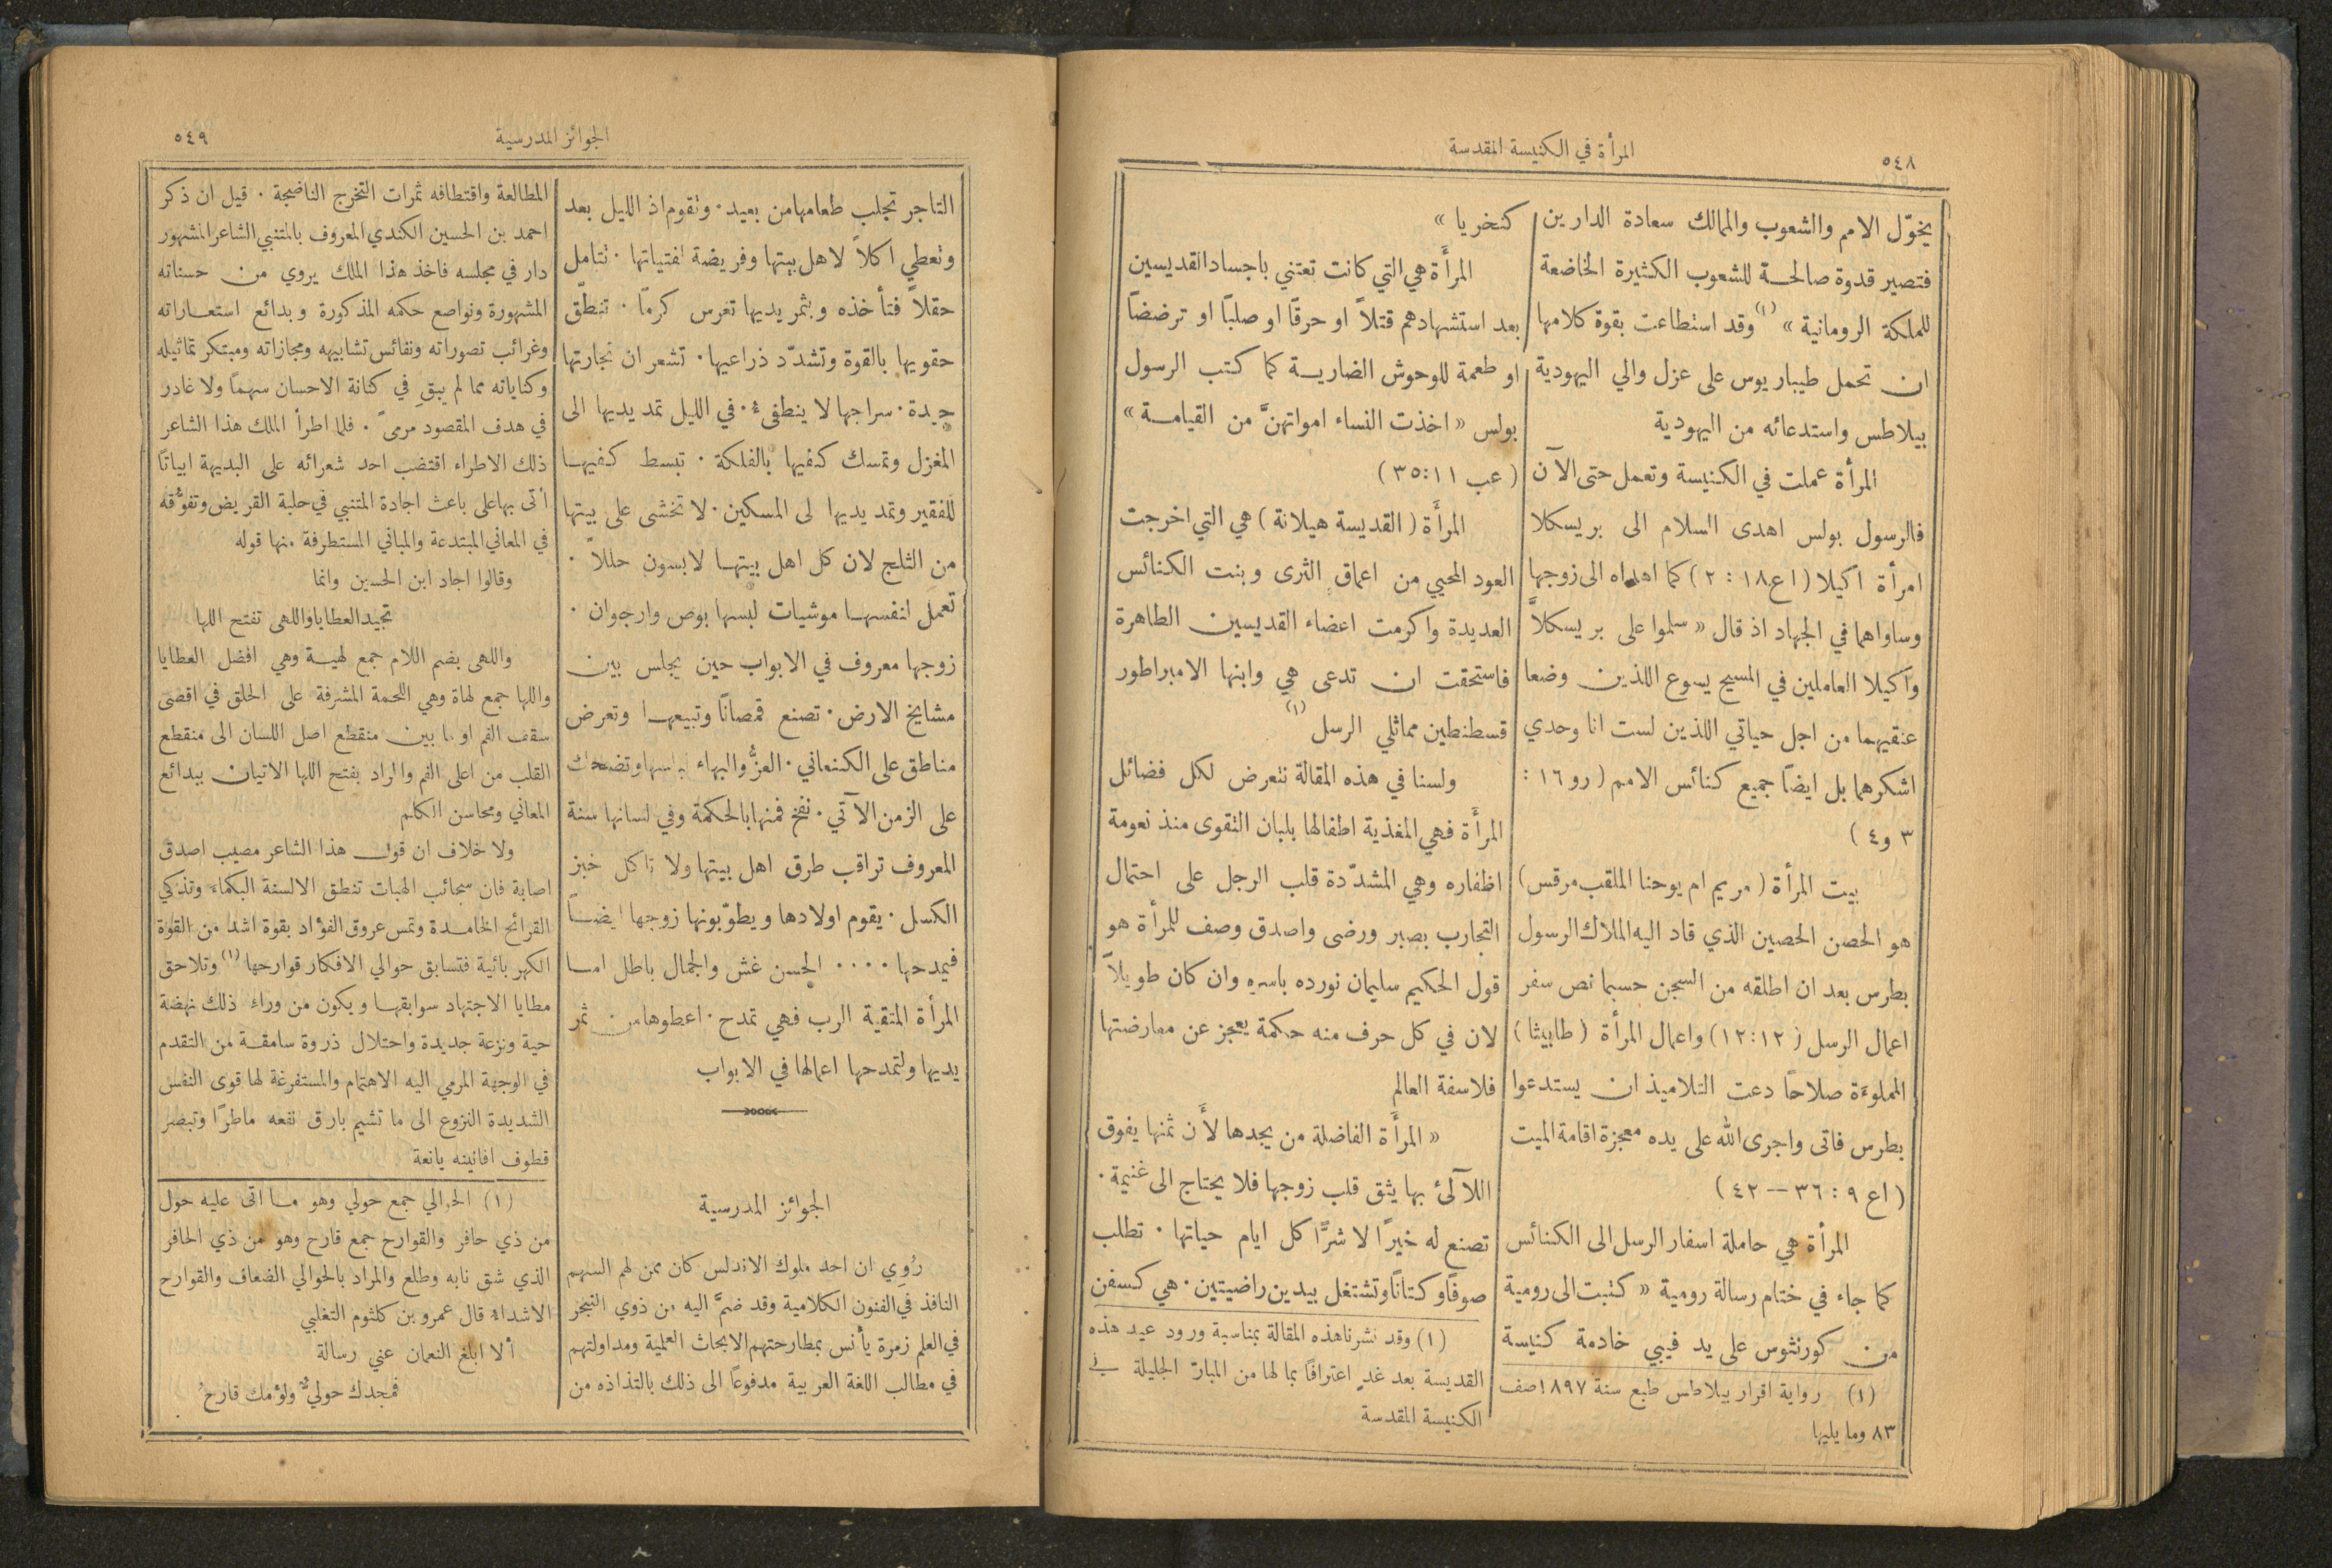 ٥٤٨
المرأة في الكنيسة المقدسة
يخوّل الامم والشعوب والممالك سعادة الدارين
فتصير قدوة صالحة للشعوب الكثيرة الخاضعة
للملكة الرومانية » (١) وقد استطاعت بقوة كلامها
ان تحمل طيباريوس على عزل والي اليهودية
بيلاطس واستدعائه من اليهودية
المرأة عملت في الكنيسة وتعمل حتى الآن
فالرسول بولس اهدى السلام الى بريسكلا
امرأة اكيلا ( اع ١٨ : ٢ ) كما اهداه الى زوجها
وساواهما في الجهاد اذ قال « سلموا على بريسكلاَّ
وآكيلا العاملين في المسيح يسوع اللذين وضعا
عنقيهما من اجل حياتي اللذين لست انا وحدي
اشكرهما بل ايضًا جميع كنائس الامم ( رو ١٦ :
٣ و٤ )
بيت المرأة ( مريم ام يوحنا الملقب مرقس )
هو الحصن الحصين الذي قاد اليه الملاك الرسول
بطرس بعد ان اطلقه من السجن حسبما نص سفر
اعمال الرسل ( ١٢:١٢ ) واعمال المرأة ( طابيثا )
المملوءة صلاحًا دعت التلاميذ ان يستدعوا
بطرس فاتى واجرى الله على يده معجزة اقامة الميت
( اع ٩ : ٣٦ — ٤٢ )
المرأة هي حاملة اسفار الرسل الى الكنائس
كما جاء في ختام رسالة رومية « كتبت الى رومية
من كورنثوس على يد فيبي خادمة كنيسة
(١) رواية اقرار بيلاطس طبع سنة ١٨٩٧ صف
٨٣ وما يليها
كنخريا »
المرأَة هي التي كانت تعتني باجساد القديسين
بعد استشهادهم قتلاً او حرقًا او صلبًا او ترضضًا
او طعمة للوحوش الضارية كما كتب الرسول
بولس « اخذت النساء امواتهنَّ من القيامة »
( عب ١١:٣٥ )
المرأَة ( القديسة هيلانة ) هي التي اخرجت
العود المحيي من اعماق الثرى وبنت الكنائس
العديدة واكرمت اعضاء القديسين الطاهرة
فاستحقت ان تدعى هي وابنها الامبراطور
قسطنطين مماثلي الرسل (١)
ولسنا في هذه المقالة نتعرض لكل فضائل
المرأَة فهي المغذية اطفالها بلبان التقوى منذ نعومة
اظفاره وهي المشدّدة قلب الرجل على احتمال
التجارب بصبر ورضى واصدق وصف للمرأة هو
قول الحكيم سليمان نورده باسره وان كان طويلاً
لان في كل حرف منه حكمة يعجز عن معارضتها
فلاسفة العالم
« المرأَة الفاضلة من يجدها لأَن ثمنها يفوق
اللآلئ بها يثق قلب زوجها فلا يحتاج الى غنيمة .
تصنع له خيرًا لا شرًّا كل ايام حياتها . تطلب
صوفًا وكتانًا وتشتغل بيدين راضيتين . هي كسفن
(١) وقد نشرنا هذه المقالة بمناسبة ورود عيد هذه
القديسة بعد غدٍ اعترافًا بما لها من المبارّ الجليلة في
الكنيسة المقدسة
الجوائز المدرسية
٥٤٩
التاجر تجلب طعامها من بعيد . وتقوم اذ الليل بعد
وتعطي اكلاً لاهل بيتها وفريضة لفتياتها . تتأمل
حقلاً فتأخذه وبثمر يديها تغرس كرمًا . تنطّق
حقويها بالقوة وتشدّد ذراعيها . تشعر ان تجارتها
جيدة . سراجها لا ينطفئ . في الليل تمد يديها الى
المغزل وتمسك كفيها بالفلكة . تبسط كفيها
للفقير وتمد يديها لى المسكين . لا تخشى على بيتها
من الثلج لان كل اهل بيتها لابسون حللاً .
تعمل لنفسها موشيات لبسها بوص وارجوان .
زوجها معروف في الابواب حين يجلس بين
مشايخ الارض . تصنع قمصانًا وتبيعها وتعرض
مناطق على الكنعاني . العزُّ والبهاء لباسها وتضحك
على الزمن الآتي . تفتح فمها بالحكمة وفي لسانها سنة
المعروف تراقب طرق اهل بيتها ولا تاكل خبز
الكسل . يقوم اولادها ويطوّبونها زوجها ايضًا
فيمدحها .... الحسن غش والجمال باطل اما
المرأة المتقية الرب فهي تمدح . اعطوها من ثمر
يديها ولتمدحها اعمالها في الابواب
الجوائز المدرسية
رُوِي ان احد ملوك الاندلس كان ممن لهم السهم
النافذ في الفنون الكلامية وقد ضمَّ اليه من ذوي التبحر
في العلم زمرة يأنس بمطارحتهم الابحاث العلمية ومداولتهم
في مطالب اللغة العربية مدفوعًا الى ذلك بالتذاذه من
المطالعة واقتطافه ثمرات التخرج الناضجة . قيل ان ذكر
احمد بن الحسين الكندي المعروف بالمتنبي الشاعر المشهور
دار في مجلسه فاخذ هذا الملك يروي من حسناته
المشهورة ونواصع حكمه المذكورة وبدائع استعاراته
وغرائب تصوراته ونفائس تشابيهه ومجازاته ومبتكر تماثيله
وكناياته مما لم يبقِ في كنانة الاحسان سهمًا ولا غادر
في هدف المقصود مرمىً . فلما اطرأ الملك هذا الشاعر
ذلك الاطراء اقتضب احد شعرائه على البديهة ابياتًا
أتى بها على باعث اجادة المتنبي في حلبة القريض وتفوُّقه
في المعاني المبتدعة والمباني المستطرفة منها قوله
وقالوا اجاد ابن الحسين وانما
تجيد العطايا واللهى تفتح اللها
واللهى بضم اللام جمع لهية وهي افضل العطايا
واللها جمع لهاة وهي اللحمة المشرفة على الحلق في اقصى
سقف الفم او ما بين منقطع اصل اللسان الى منقطع
القلب من اعلى الفم والمراد بفتح اللها الاتيان ببدائع
المعاني ومحاسن الكلم
ولا خلاف ان قول هذا الشاعر مصيب اصدق
اصابة فان سحائب الهبات تنطق الالسنة البكماء وتذكي
القرائح الخامدة وتمس عروق الفؤاد بقوة اشد من القوة
الكهربائية فتسابق حوالي الافكار قوارحها (١) وتلاحق
مطايا الاجتهاد سوابقها ويكون من وراء ذلك نهضة
حية ونزعة جديدة واحتلال ذروة سامقة من التقدم
في الوجهة المرمي اليه الاهتمام والمستفرغة لها قوى النفس
الشديدة النزوع الى ما تشيم بارق نفعه ماطرًا وتبصر
قطوف افانينه يانعة
(١) الحوالي جمع حولي وهو ما اتى عليه حول
من ذي حافر والقوارح جمع قارح وهو من ذي الحافر
الذي شق نابه وطلع والمراد بالحوالي الضعاف والقوارح
الاشداء قال عمرو بن كلثوم التغلبي
ألا ابلغ النعمان عني رسالة
فمجدك حوليٌّ ولؤمك قارحُ